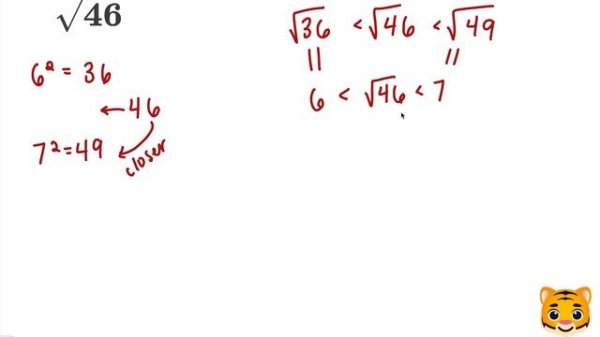 √46
6² = 36
46
7² = 49
closer
√36 < √46 < √49
6 < √46 < 7